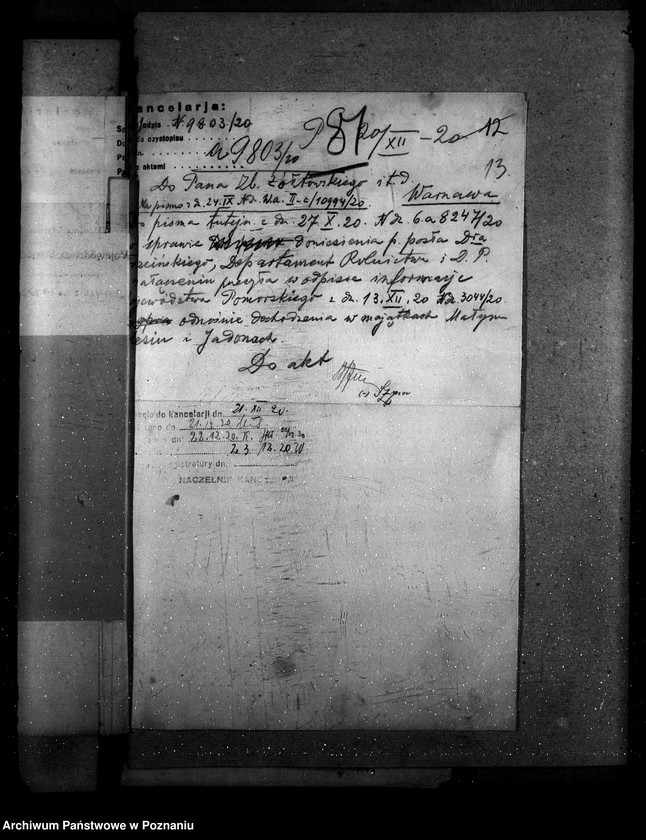 ancelarja:
podpis № 9803/20
do czystopisu
a 9803/20
z aktami
P 20/XII - 20 12
13.
Do Pana Zb. Żółtowskiego i t. d.
Warszawa
Na pismo z d. 24. IX № dz. II-c/10994/20.
pisma tutejn. z dn. 27 X. 20. № dz. 6.a 8247/20
sprawie doniesienia p. posła Dra
cińskiego, Departament Rolnictwa i D. P.
w odpisie informacje
wództwa Pomorskiego z dn. 13. XII. 20 № dz. 3044/20.
odnośnie dochodzenia w majątkach Małym
i Jadonach.
Do akt
(-) Szym
do kancelarji dn. 21. XII 20.
dn. 22.12.20.
23. 12. 20
registratury dn.
NACZELNIK KANC
Archiwum Państwowe w Poznaniu